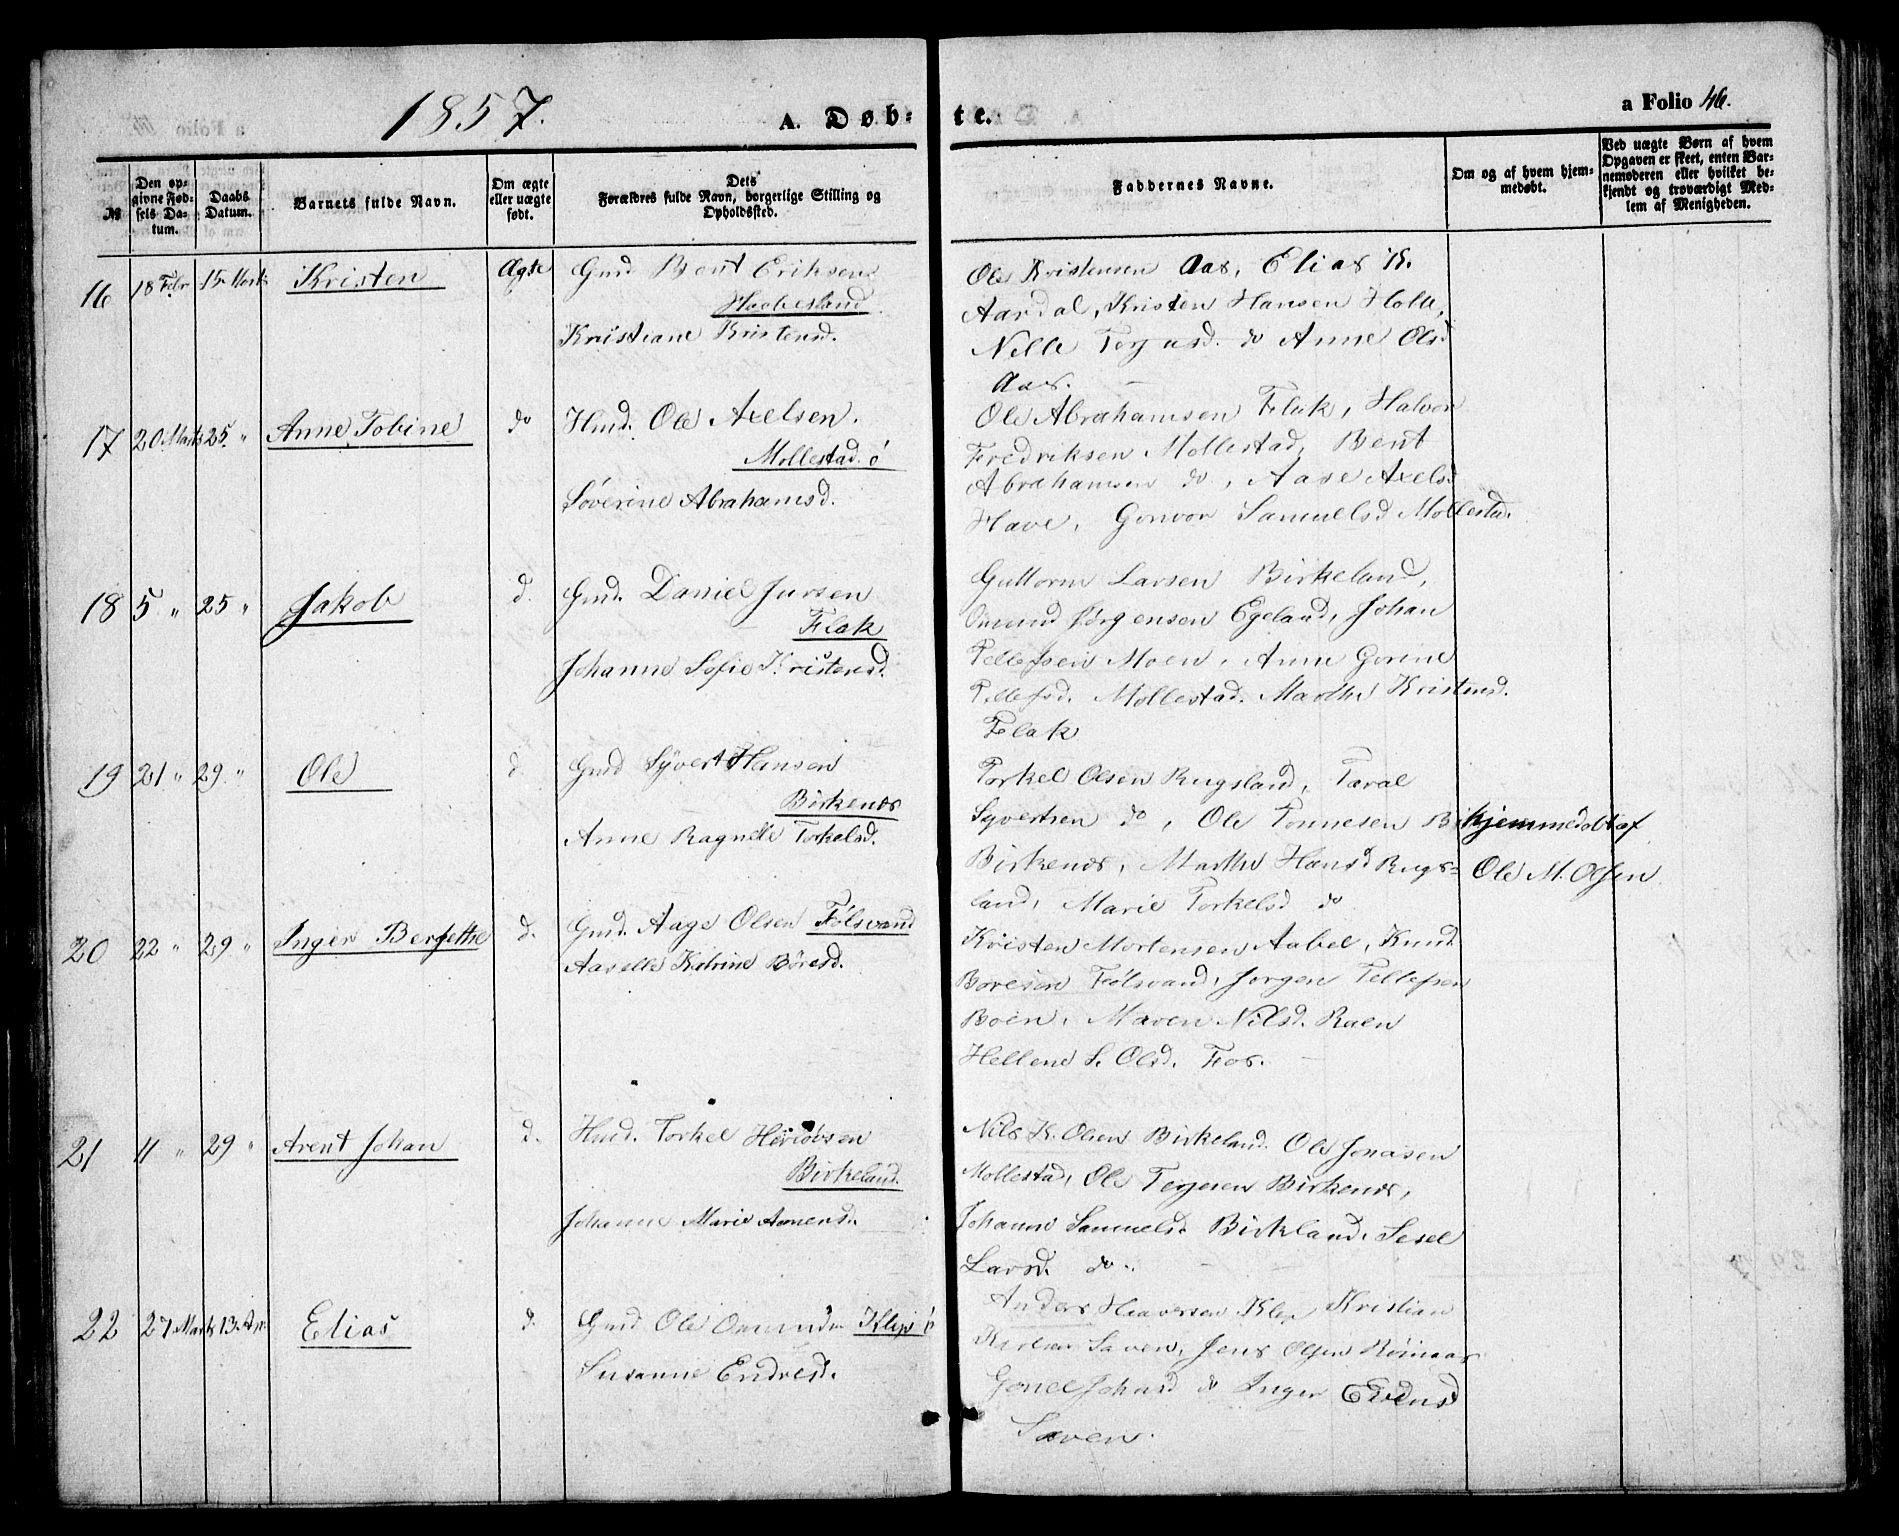 1857.
A. Døb-
te.
a Folio 46.
№
Den op-
givne Fød-
sels Da-
tum.
Daabs
Datum.
Barnets fulde Navn.
Om ægte
eller uægte
født.
Dets
Forældres fulde Navn, borgerlige Stilling og
Opholdssted.
Faddernes Navne.
Om og af hvem hjem-
medøbt.
Ved uægte Børn af hvem
Opgaven er skeet, enten Bar-
nemoderen eller hvilket be-
kjendt og troværdigt Med-
lem af Menigheden.
16 18 Febr 15 Marts Kristen Ægte Gmd Bent Eriksen
Haabesland
Kristiane Kristensd.
Ole Kristensen Aas, Elias K.
Aardal, Kristen Hansen Holte,
Nille Terjusd. do Anne Olsd
Aas.
17 20 Marts 25 " Anne Tobine do Hmd. Ole Axelsen.
Mollestad. ø
Søverine Abrahamsd.
Ole Abrahamsen Flak, Halvor
Fredriksen Mollestad, Bent
Abrahamsen do, Aase Axelsd
Have, Gonvor Samuelsd Mollestad.
18 5 " 25 " Jakob d. Gmd. Daniel Jursen
Flak
Johanne Sofie Kristensd.
Guttorm Larsen Birkeland,
Omund Jørgensen Egeland, Johan
Tellefsen Moen, Anne Gorine
Tellefsd. Mollestad. Marthe Kristensd.
Flak
19 21 " 29 " Ole d. Gmd Syvert Hansen
Birkenes
Anne Ragnille Torkelsd.
Torkel Olsen Rugsland, Taral
Syvertsen do, Ole Tonnesen
Birkenes, Marthe Hansd Rugs-
land, Marie Torkelsd do
Hjemmedøbt af
Ole M. Olsen
20 22 " 29 " Inger Bergethe d. Gmd. Aage Olsen Følsvand
Aaselle Katrine Børesd.
Kristen Mortensen Aabel, Knud
Boresen Følsvand, Jorgen Tellefsen
Boen, Maren Nilsd. Raen
Hellene S. Olsd. Fos.
21 11 " 29 " Arent Johan d. Hmd. Torkel Heriobsen
Birkeland.
Johanne Marie Aanensd.
Nils K. Olsen Birkeland. Ole Jonasen
Mollestad, Ole Terjesen Birkenes,
Johanne Samuelsd Birkland, Sesel
Larsd. do.
22 27 Marts 13. Apr Elias d. Gmd Ole Omunds Klep ø
Susanne Endresd.
Anders Haaversen Klep Kristian
Saven, Jens Olsen Røinaas
Gonel Johnsd do Inger Evensd
Saven.